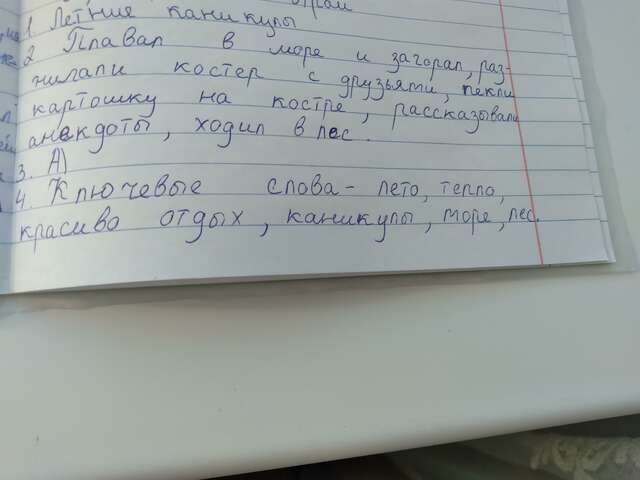 1 Летние каникулы
2 Плавал в море и загорал, раз-
жигали костер с друзьями, пекли
картошку на костре, рассказывали
анекдоты, ходил в лес.
3. А)
4. Ключевые слова - лето, тепло,
красиво отдых, каникулы, море, лес.